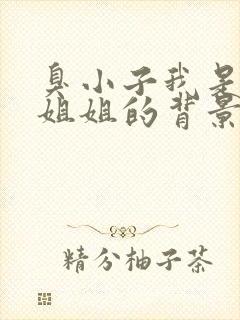 臭小子我是
姐姐的背景
精分柚子茶